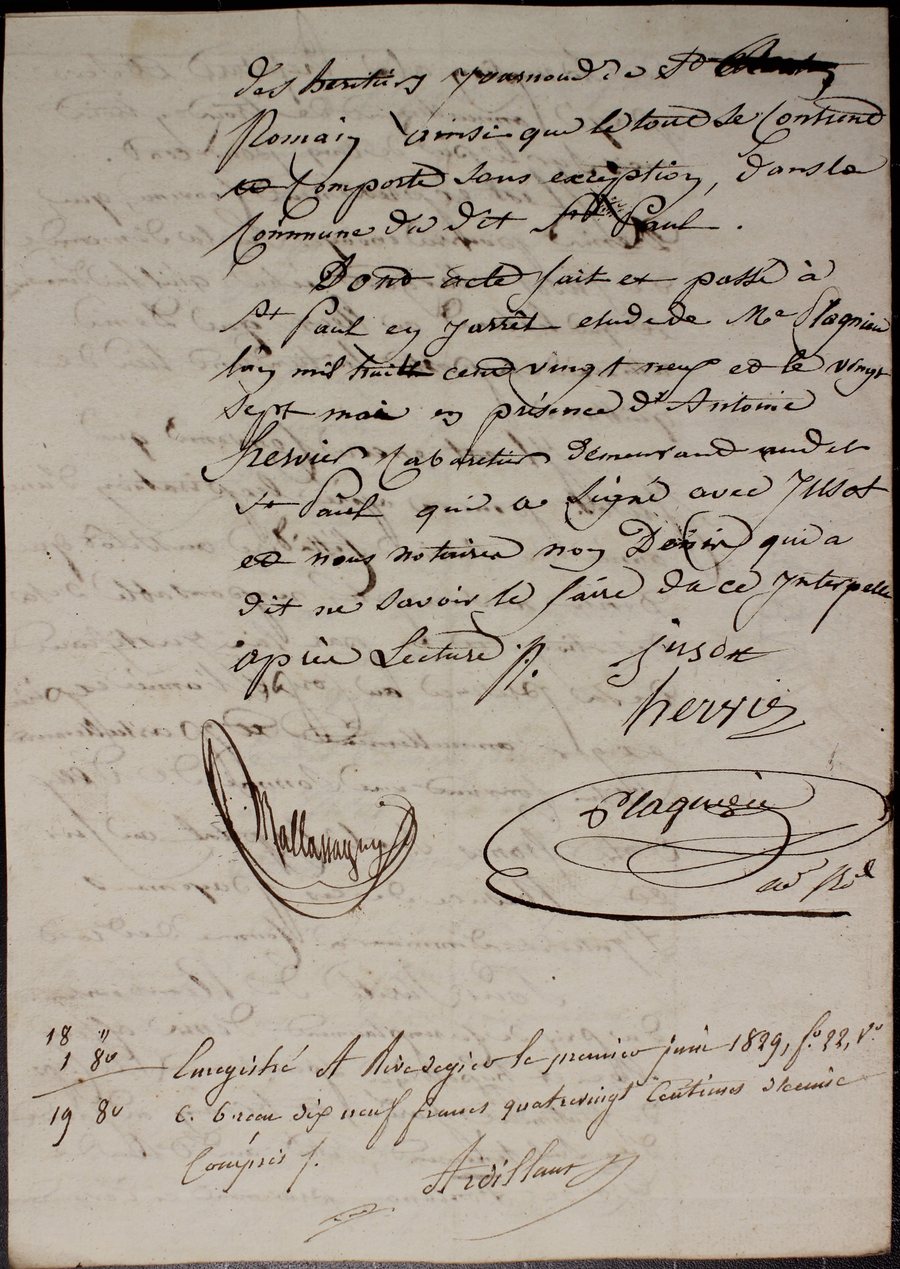 des heritiers jvarnoud de St
Romain ainsi que le tout se Contiend
et Comporte sans exception, dans la
Commune du dit St Paul.
Dond acte fait et passé à
St Paul en Jarrêt etude de Me Plagnieu
l'an mil huit cend vingt neuf et le vingt
sept mai en présence d'Antoine
hervier Cabaretier demeurand audit
St Paul qui a Signé avec Jusot
et nous notaires non Dénis qui a
dit ne savoir le faire de ce Interpellé
après Lecture ./.
jusot
hervie
Mallassagny
Plagnieu
18 "
1 80
19 80
Enregistré A Rivedegier le premier juin 1829, fo. 22, Vo.
C. 6 reçu dix neuf francs quatrevingt Centimes dixeme
Compris /.
Ardillaut